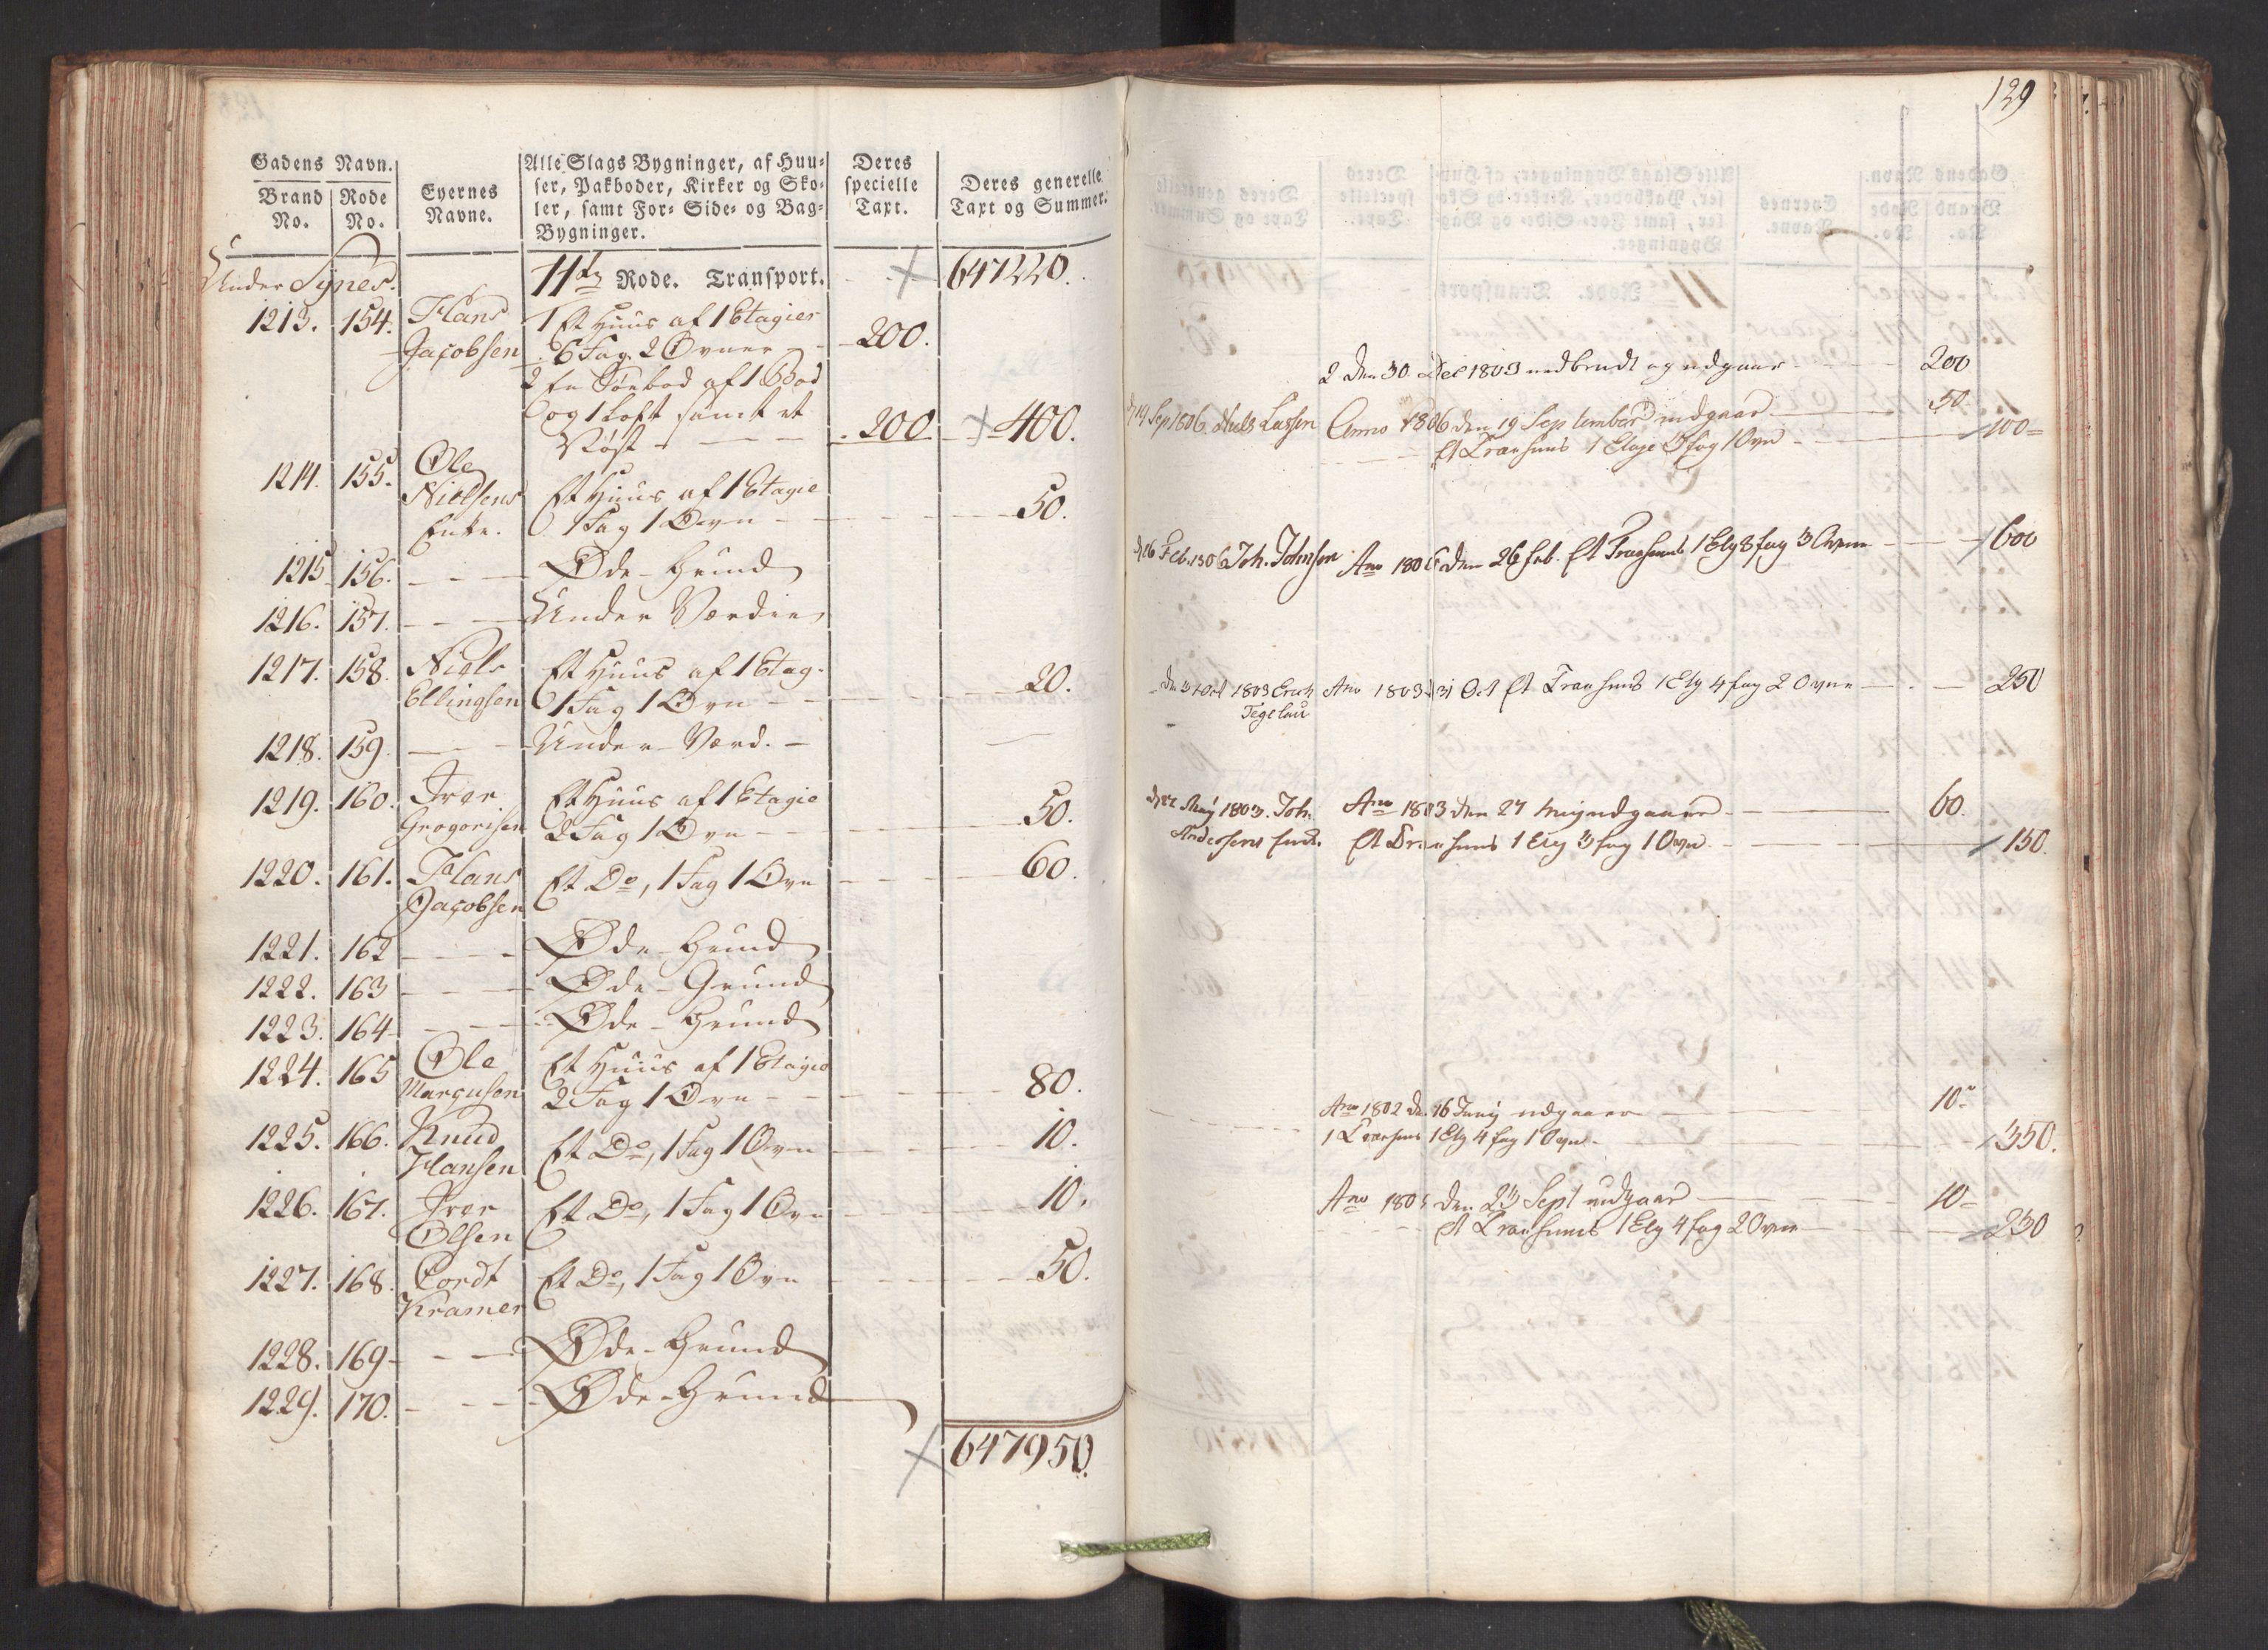 Gadens Navn.
Brand No. Rode No. Eyernes Navne. Alle Slags Bygninger, af Huu-
ser, Pakboder, Kirker og Sko-
ler, samt For- Side- og Bag-
Bygninger.
Deres specielle Taxt.
Deres generelle Taxt og Summer.
Under Synes. 11te Rode. Transport. 647220.
1213. 154. Hans 1 Et Huus af 1 Etagier
Jacobsen 6 Fag 2 Ovner - 200.
2 En Søebod af 1 Bod
og 1 Loft samt et
Nøst - 200 400.
1214. 155. Ole
Nielsens Et Huus af 1 Etagie
Enke. 1 Fag 1 Ovn - 50.
1215 156. - Øde-Grund
1216. 157. - Under Værdie
1217. 158. Niels Et Huus af 1 Etag.
Ellingsen 1 Fag 1 Ovn - 20.
1218. 159. - Under-Værd. -
1219. 160. Iver Et Huus af 1 Etagie
Gregorisen 2 Fag 1 Ovn - 50.
1220. 161. Hans Et Do, 1 Fag 1 Ovn - 60.
Jacobsen
1221. 162 - Øde-Grund
1222. 163 - Øde-Grund
1223. 164 - Øde-Grund
1224. 165 Ole Et Huus af 1 Etagie
Marcusen 2 Fag 1 Ovn - 80.
1225. 166. Knud Et Do, 1 Fag 1 Ovn - 10.
Hansen
1226. 167. Iver Et Do, 1 Fag 1 Ovn - 10.
Olsen
1227. 168. Cordt Et Do, 1 Fag 1 Ovn - 50.
Kramer
1228. 169 - Øde-Grund
1229. 170. - Øde-Grund
647950.
129
2 den 30 Dec 1803 nedbrudt og udgaar - 200
d 19 Sep 1806 Niels Lassen Anno 1806 den 19 September udgaar - 50
Et Træehuus 1 Etage 3 fag 1 Ovn - 100
d 26 Feb. 1806 Joh. Johnsen Ano 1806 den 26 feb. Et Træehuus 1 Etg 8 fag 3 Ovne - 600
den 31 Oct 1803 Erich Ano 1803 d 31 Oct Et Træehuus 1 Etg 4 fag 2 Ovne - 250
Tegelau
d 27 May 1803. Joh. Ano 1803 den 27 May udgaaer - 60.
Andersens Enke. Et Træehuus 1 Etg 3 fag 1 Ovn - 150.
Ano 1802 den 16 Juny udgaaer - 10
1 Træehuus 1 Etg 4 fag 1 Ovn - 350.
Ano 1805 den 23 Sept udgaar - 10
Et Træehuus 1 Etg 4 fag 2 Ovne - 250